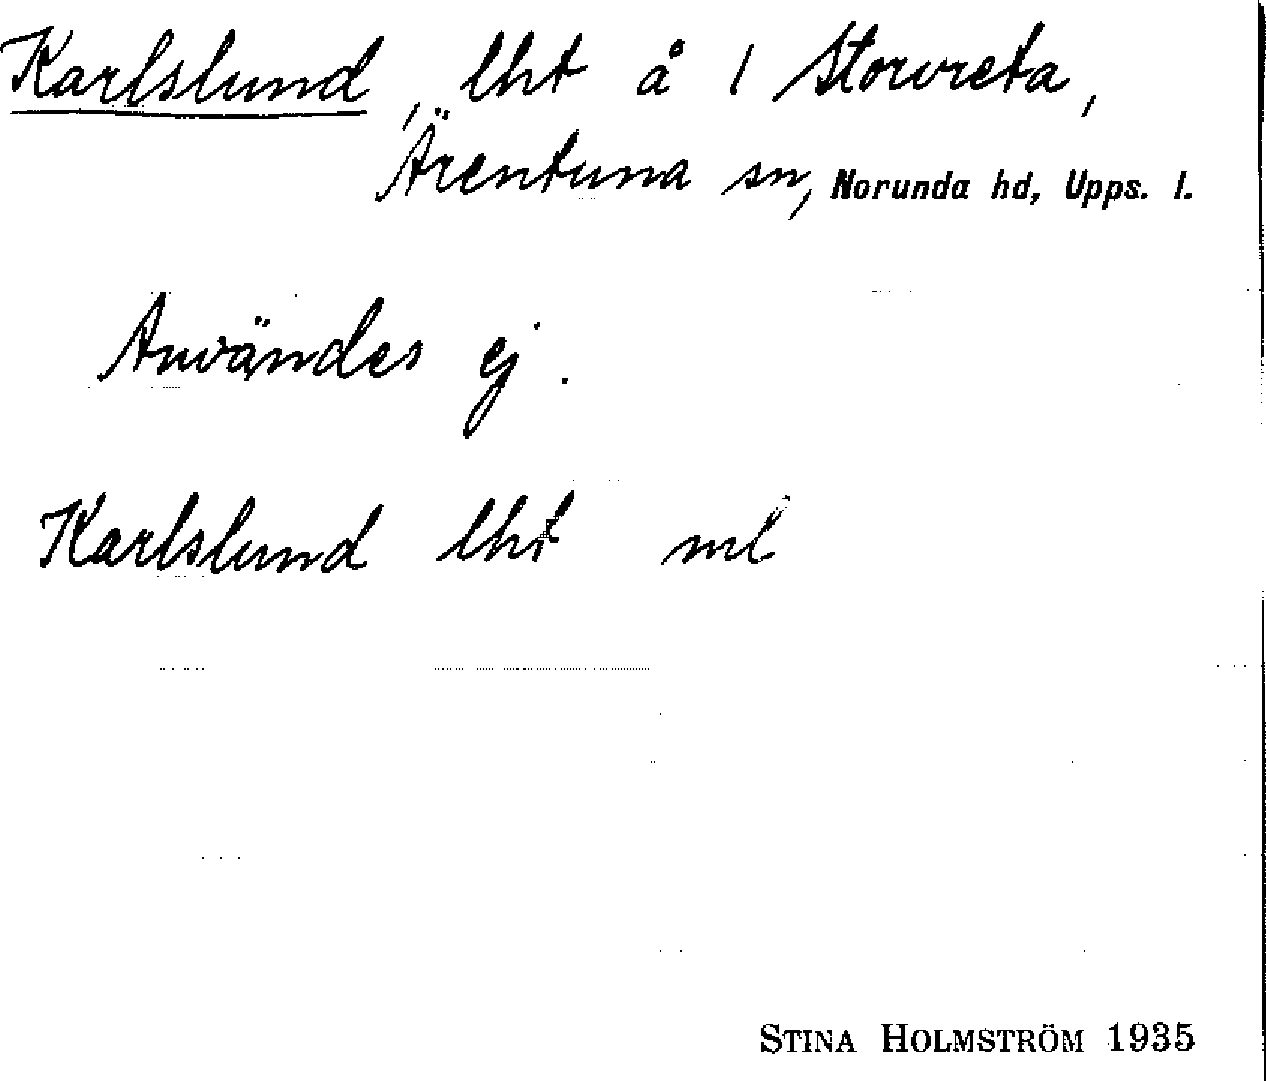 Karlslund, lht å 1 Storvreta,
Ärentuna sn, Norunda hd, Upps. l.
Användes ej.
Karlslund lht ml
STINA HOLMSTRÖM 1935